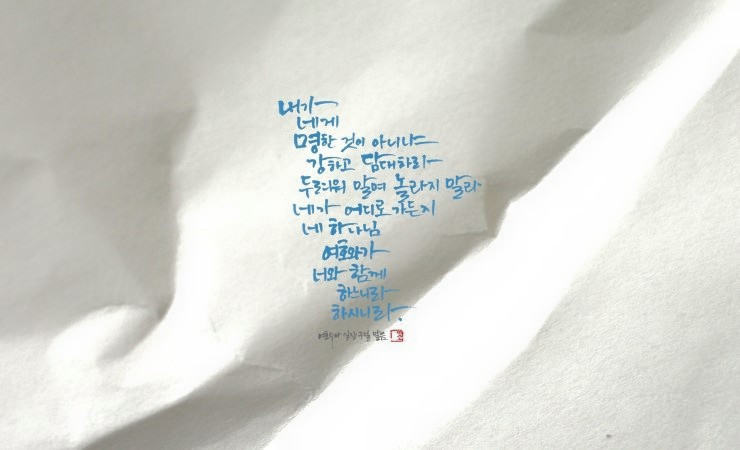 내가
네게
명한 것이 아니냐
강하고 담대하라
두려워 말며 놀라지 말라
네가 어디로 가든지
네 하나님
여호와가
너와 함께
하느니라
하시니라.
여호수아 일장 구절 말씀